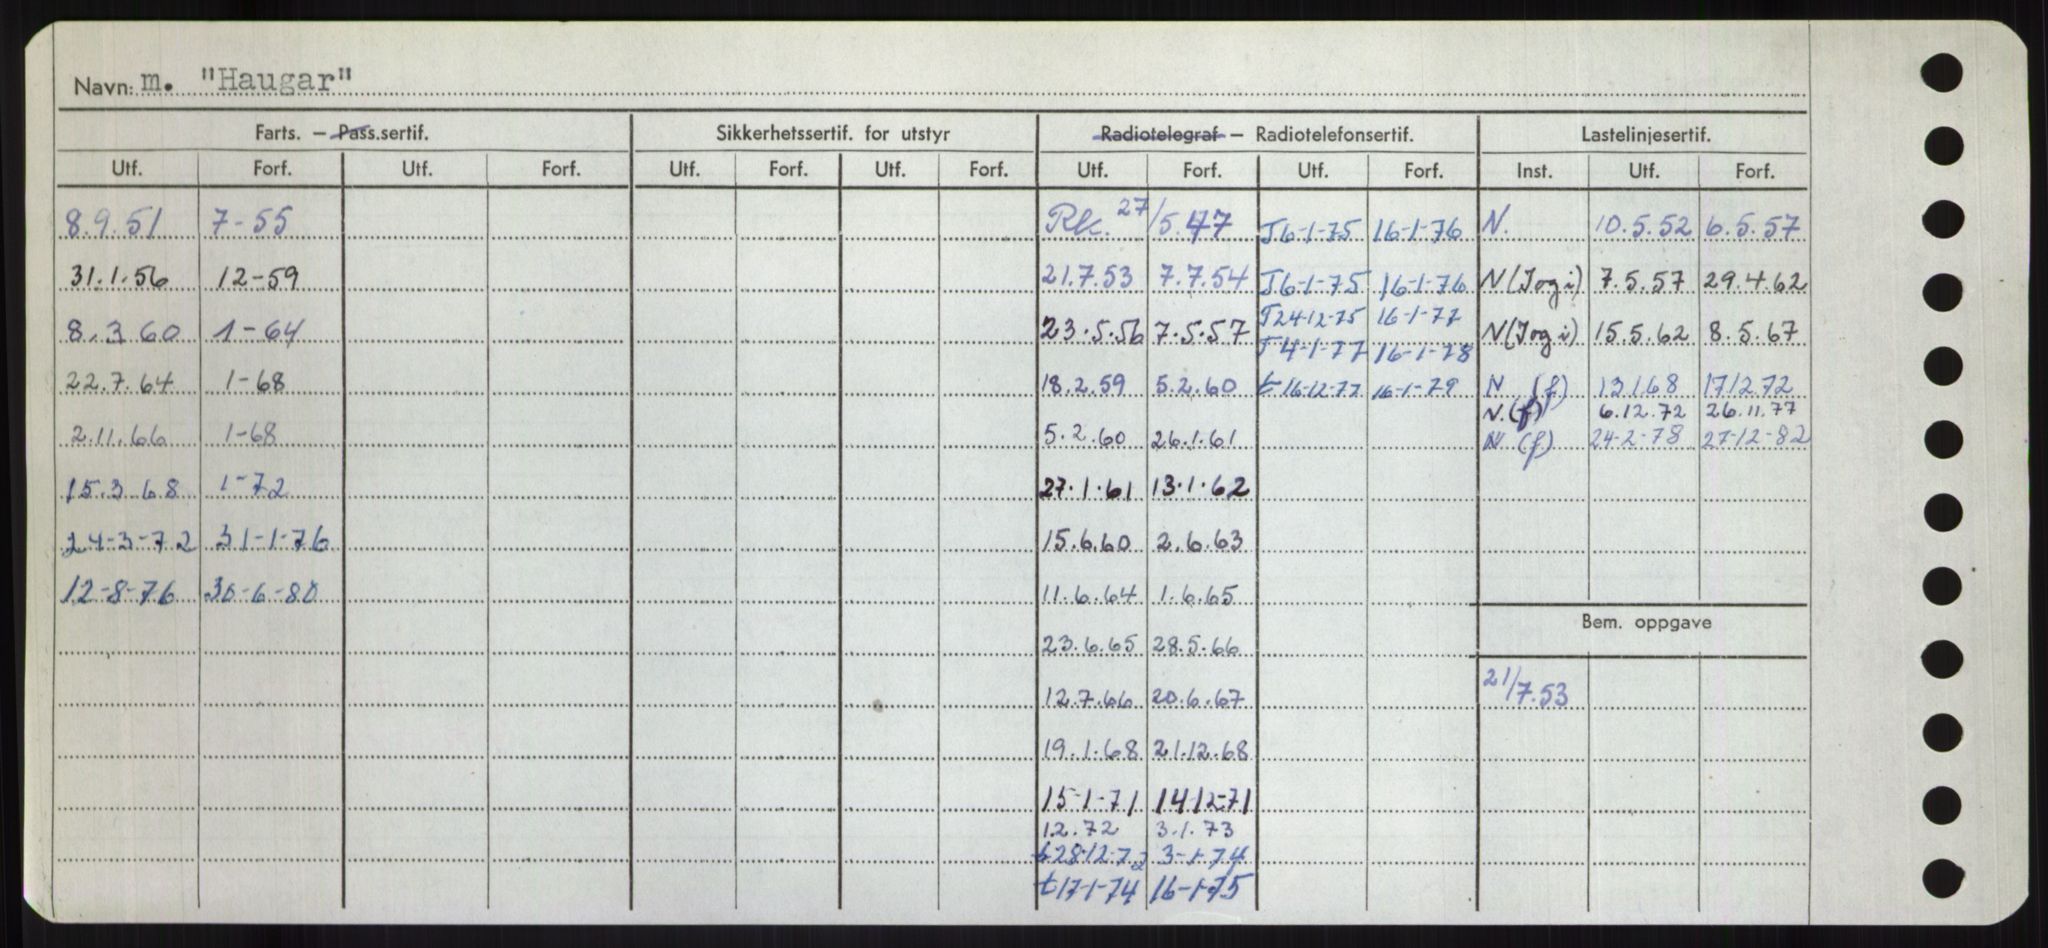 Navn: m. "Haugar"
Farts. – Pass.sertif. Sikkerhetssertif. for utstyr Radiotelegraf – Radiotelefonsertif. Lastelinjesertif.
Utf. Forf. Utf. Forf. Utf. Forf. Utf. Forf. Utf. Forf. Utf. Forf. Inst. Utf. Forf.
8.9.51 7-55 Rk. 27/5.47 T6-1-75 16-1-76 N. 10.5.52 6.5.57
31.1.56 12-59 21.7.53 7.7.54 T6-1-75 16-1-76 N(Jog i) 7.5.57 29.4.62
T24-12-75 16-1-77
8.3 60 1-64 23.5.56 7.5.57 T 4-1-77 16-1-78 N(Jog i) 15.5.62 8.5.67
22.7.64 1-68 18.2.59 5.2.60 t 16-12-77 16-1-79 N (f) 13168 171272
N.(f) 6.12.72 26.11.77
2.11.66 1-68 5.2.60 26.1.61 N (f) 24-2-78 27-12-82
15.3 68 1-72 27.1.61 13.1.62
24-3-72 31-1-76 15.6.60 2.6.63
12-8-76 30-6-80 11.6.64 1.6.65
Bem. oppgave
23.6.65 28.5.66
12.7.66 20.6.67 21/7.53
19.1.68 21.12.68
15-1-71 14-12-71
12.72 3.1.73
t28-12-72 3-1-74
t17-1-74 16-1-75